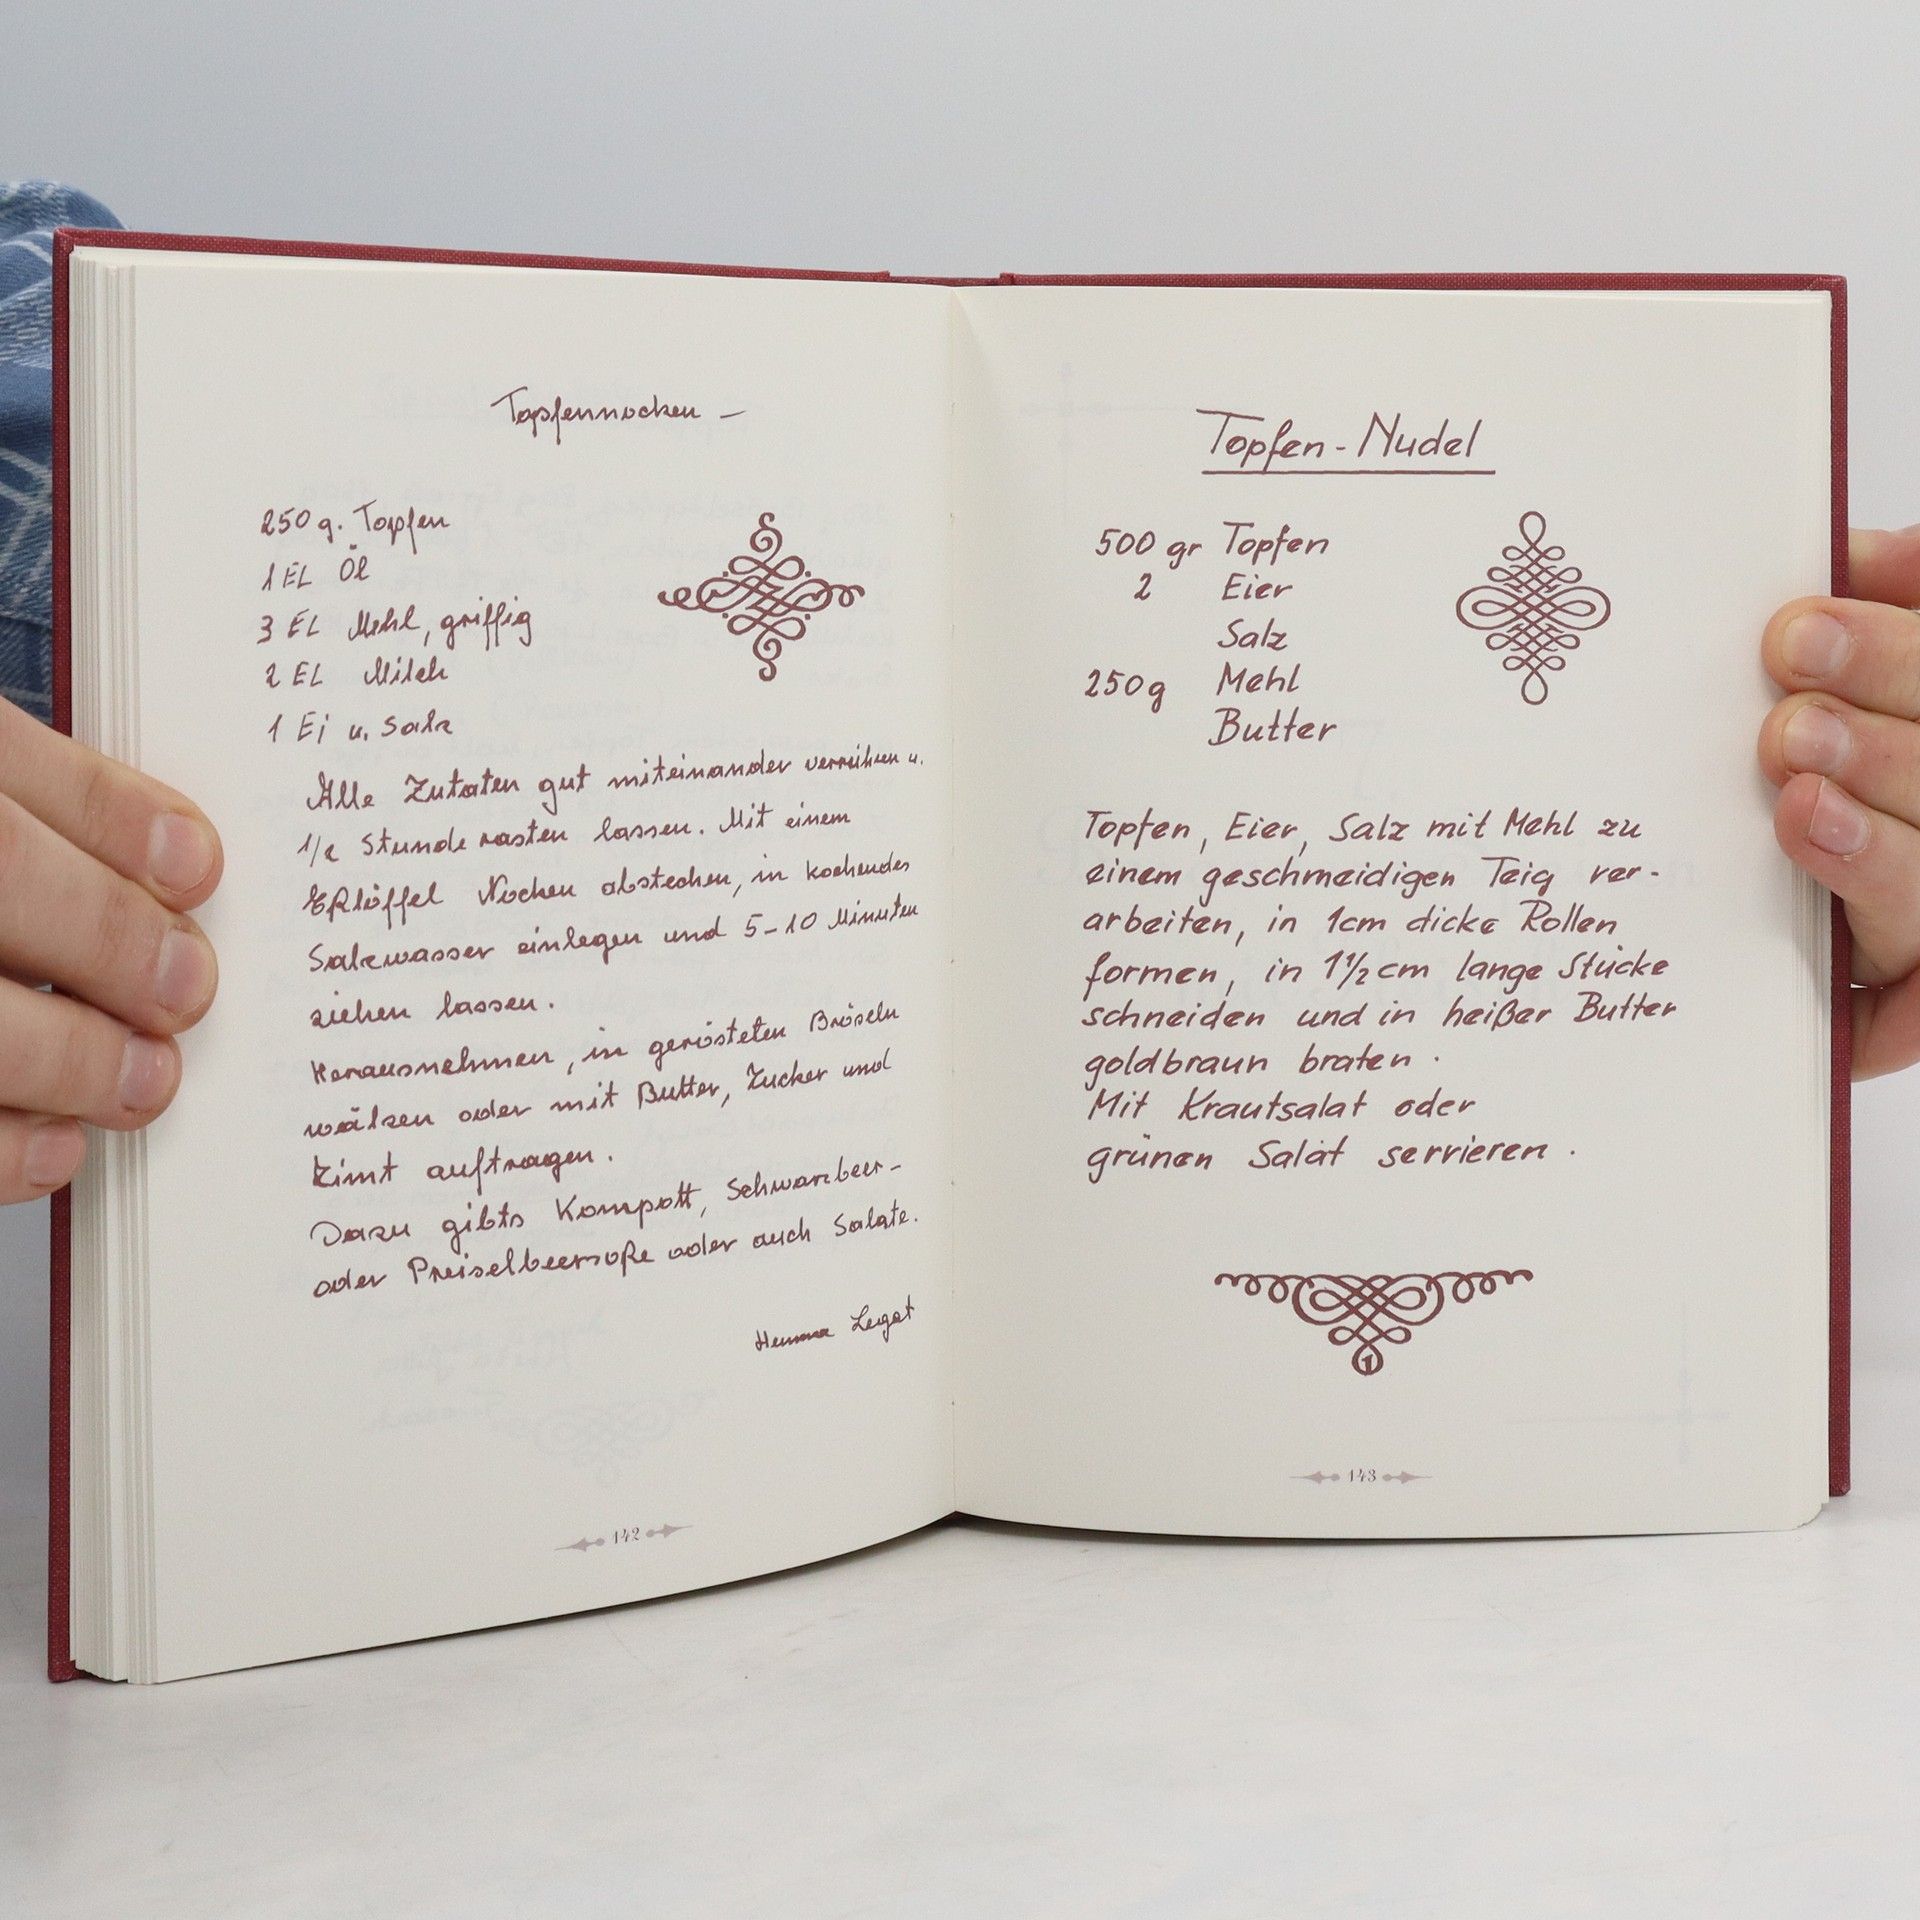 Topfennocken –
250 g. Topfen
1 EL Öl
3 EL Mehl, griffig
2 EL Milch
1 Ei u. Salz
Alle Zutaten gut miteinander verrühren u.
1/2 Stunde rasten lassen. Mit einem
Eßlöffel Nocken abstechen, in kochendes
Salzwasser einlegen und 5-10 Minuten
ziehen lassen.
Herausnehmen, in gerösteten Bröseln
wälzen oder mit Butter, Zucker und
Zimt auftragen.
Dazu gibts Kompott, Schwarzbeer-
oder Preiselbeersoße oder auch Salate.
Hemma Legat
142
Topfen-Nudel
500 gr Topfen
2 Eier
Salz
250g Mehl
Butter
Topfen, Eier, Salz mit Mehl zu
einem geschmeidigen Teig ver-
arbeiten, in 1cm dicke Rollen
formen, in 1 1/2 cm lange Stücke
schneiden und in heißer Butter
goldbraun braten.
Mit Krautsalat oder
grünen Salat servieren.
143